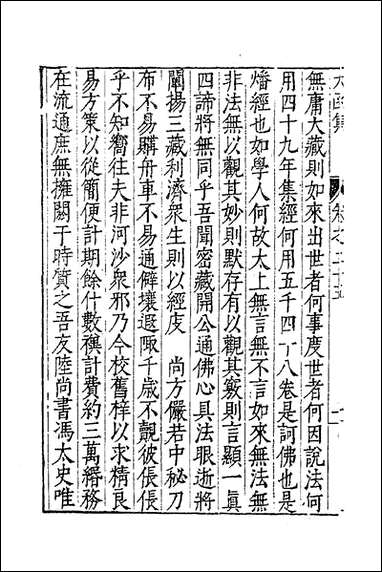 無庸大藏則如來出世者何事度世者何因說法何
用四十九年集經何用五千四十八卷是訶佛也是
燔經也如學人何故太上無言無不言如來無法無
非法無以觀其妙則默存有以觀其竅則言顯一真
四諦將無同乎吾聞密藏開公通佛心具法眼逝將
闡揚三藏利濟衆生則以經庋　尚方儼若中秘刀
布不易購舟車不易通僻壤遐陬千歲不覿彼倀倀
乎不知嚮往夫非河沙衆邪乃今校舊梓以求精良
易方策以從簡便計期餘什數襈計費約三萬緡務
在流通庶無擁閼于時質之吾友陸尚書馮太史唯